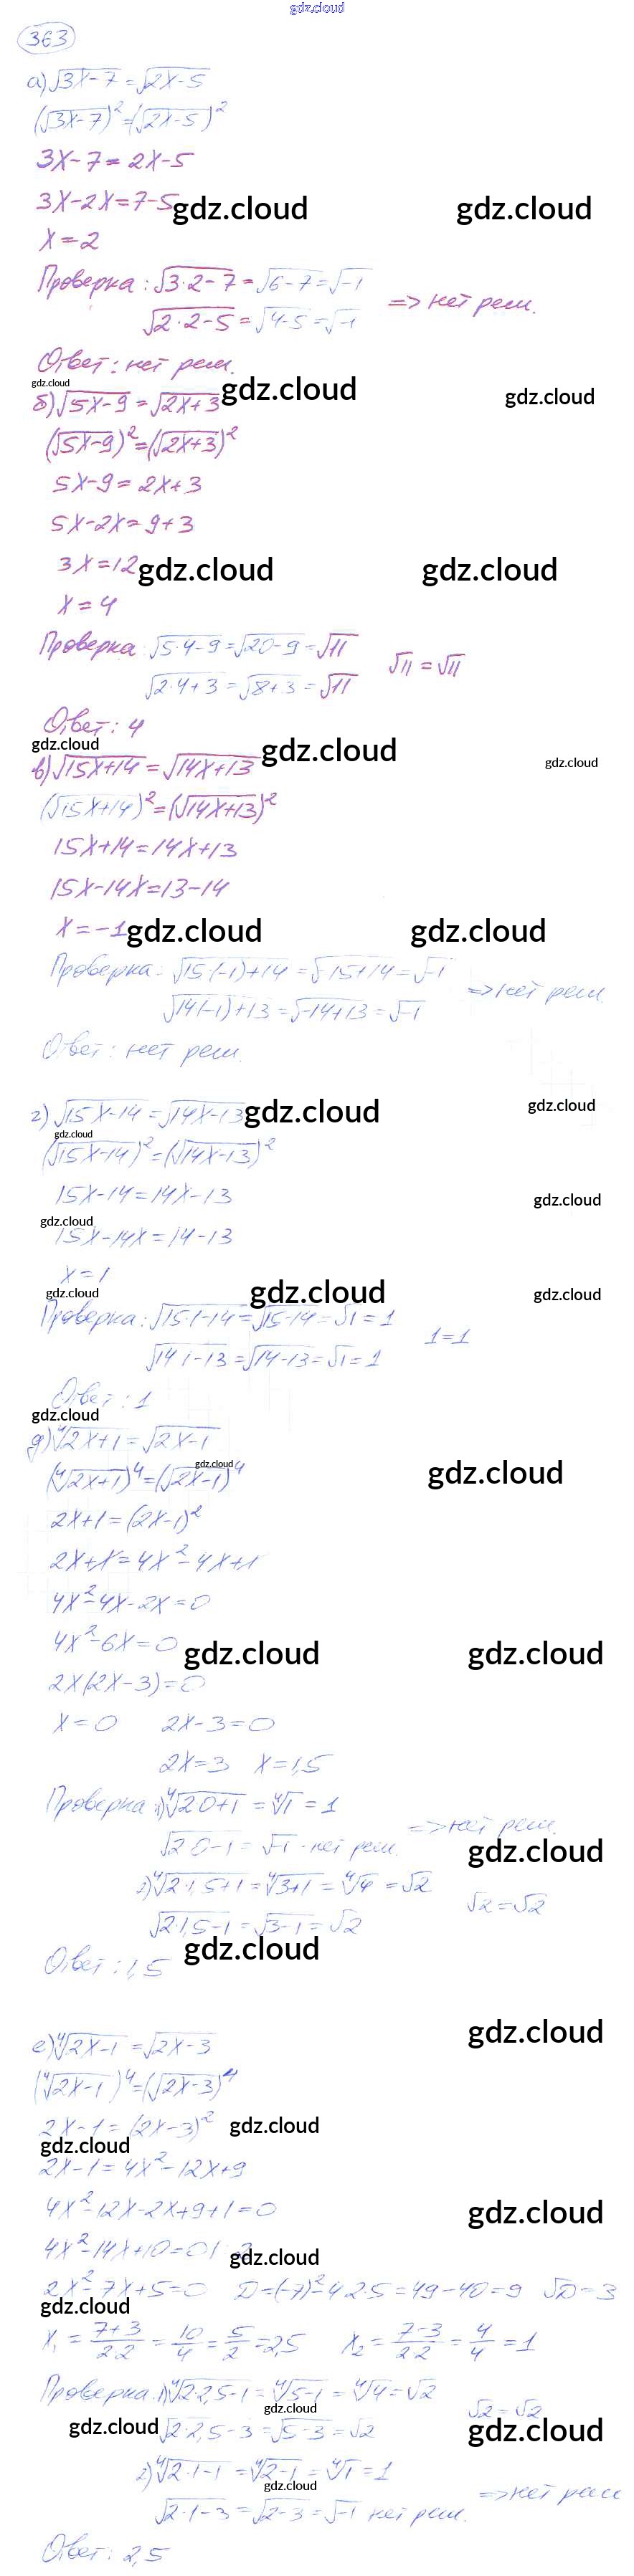 gdz.cloud
363
а) √3x-7 = √2x-5
(√3x-7)² = (√2x-5)²
3x-7 = 2x-5
3x-2x = 7-5
gdz.cloud gdz.cloud
x = 2
Проверка: √3·2-7 = √6-7 = √-1
√2·2-5 = √4-5 = √-1 => нет реш.
Ответ: нет реш.
gdz.cloud gdz.cloud gdz.cloud
б) √5x-9 = √2x+3
(√5x-9)² = (√2x+3)²
5x-9 = 2x+3
5x-2x = 9+3
3x = 12
gdz.cloud gdz.cloud
x = 4
Проверка: √5·4-9 = √20-9 = √11
√2·4+3 = √8+3 = √11 √11 = √11
Ответ: 4
gdz.cloud gdz.cloud gdz.cloud
в) √15x+14 = √14x+13
(√15x+14)² = (√14x+13)²
15x+14 = 14x+13
15x-14x = 13-14
x = -1
gdz.cloud gdz.cloud
Проверка: √15(-1)+14 = √-15+14 = √-1
√14(-1)+13 = √-14+13 = √-1 => нет реш.
Ответ: нет реш.
г) √15x-14 = √14x-13
gdz.cloud gdz.cloud
gdz.cloud
(√15x-14)² = (√14x-13)²
15x-14 = 14x-13
gdz.cloud
gdz.cloud
15x-14x = 14-13
x = 1
gdz.cloud gdz.cloud gdz.cloud
Проверка: √15·1-14 = √15-14 = √1 = 1
√14·1-13 = √14-13 = √1 = 1 1=1
Ответ: 1
gdz.cloud
д) ⁴√2x+1 = √2x-1
gdz.cloud gdz.cloud
(⁴√2x+1)⁴ = (√2x-1)⁴
2x+1 = (2x-1)²
2x+1 = 4x²-4x+1
4x²-4x-2x = 0
4x²-6x = 0
gdz.cloud gdz.cloud
2x(2x-3) = 0
x = 0 2x-3 = 0
2x = 3 x = 1,5
Проверка: 1) ⁴√2·0+1 = ⁴√1 = 1
√2·0-1 = √-1 - нет реш. => нет реш.
gdz.cloud
2) ⁴√2·1,5+1 = ⁴√3+1 = ⁴√4 = √2
√2·1,5-1 = √3-1 = √2 √2 = √2
gdz.cloud
Ответ: 1,5
gdz.cloud
е) ⁴√2x-1 = √2x-3
(⁴√2x-1)⁴ = (√2x-3)⁴
2x-1 = (2x-3)²
gdz.cloud
gdz.cloud
2x-1 = 4x²-12x+9
4x²-12x-2x+9+1 = 0
gdz.cloud
4x²-14x+10 = 0 |:2
gdz.cloud
2x²-7x+5 = 0 D = (-7)²-4·2·5 = 49-40 = 9 √D = 3
gdz.cloud
x₁ = 7+3/2·2 = 10/4 = 5/2 = 2,5 x₂ = 7-3/2·2 = 4/4 = 1
Проверка: 1) ⁴√2·2,5-1 = ⁴√5-1 = ⁴√4 = √2
gdz.cloud
√2·2,5-3 = √5-3 = √2 √2 = √2
gdz.cloud gdz.cloud
2) ⁴√2·1-1 = ⁴√2-1 = ⁴√1 = 1
gdz.cloud
√2·1-3 = √2-3 = √-1 нет реш. => нет реш
Ответ: 2,5